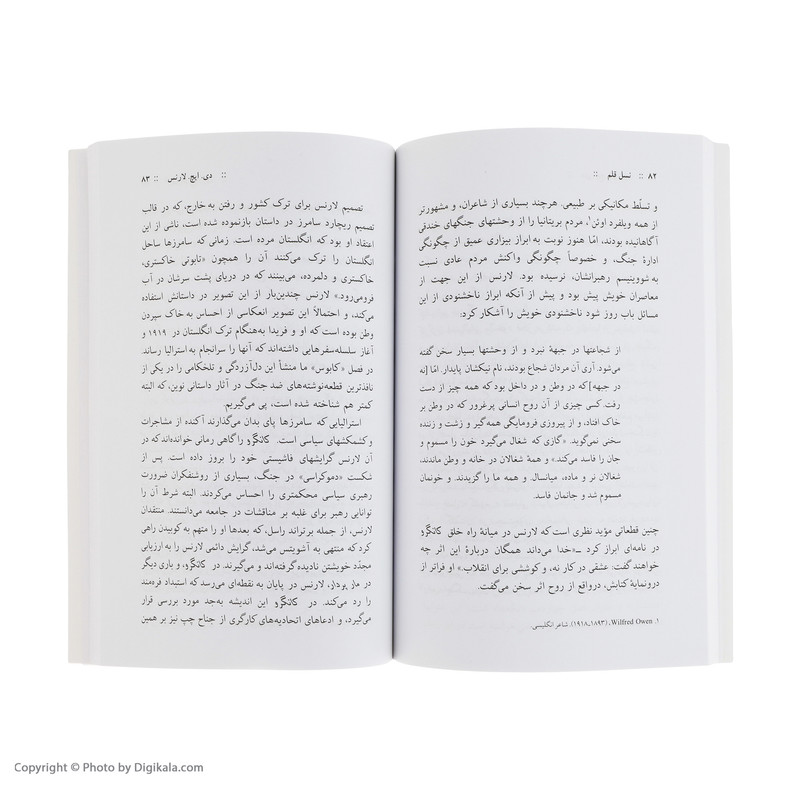 ۸۲ :: نسل قلم ::
و تسلّط مکانیکی بر طبیعی. هرچند بسیاری از شاعران، و مشهورتر
از همه ویلفرد اوئن۱، مردم بریتانیا را از وحشتهای جنگهای خندقی
آگاهانیده بودند، امّا هنوز نوبت به ابراز بیزاری عمیق از چگونگی
ادارهٔ جنگ، و خصوصاً چگونگی واکنش مردم عادی نسبت
به شووینیسم رهبرانشان، نرسیده بود. لارنس از این جهت از
معاصران خویش پیش بود و پیش از آنکه ابراز ناخشنودی از این
مسائل باب روز شود ناخشنودی خویش را آشکار کرد:
از شجاعتها در جبههٔ نبرد و از وحشتها بسیار سخن گفته
می‌شود. آری آن مردان شجاع بودند، نام نیکشان پایدار. امّا [نه
در جبهه] که در وطن و در داخل بود که همه چیز از دست
رفت. کسی چیزی از آن روح انسانی پرغرور که در وطن بر
خاک افتاد، و از پیروزی فرومایگی همه‌گیر و زشت و زننده
سخنی نمی‌گوید. «گازی که شغال می‌گیرد خون را مسموم و
جان را فاسد می‌کند.» و همهٔ شغالان در خانه و وطن ماندند،
شغالان نر و ماده، میانسال. و همه ما را گزیدند. و خونمان
مسموم شد و جانمان فاسد.
چنین قطعاتی مؤید نظری است که لارنس در میانهٔ راه خلق کانگرو
در نامه‌ای ابراز کرد ــ«خدا می‌داند همگان دربارهٔ این اثر چه
خواهند گفت: عشقی در کار نه، و کوششی برای انقلاب.» او فراتر از
درونمایهٔ کتابش، درواقع از روح اثر سخن می‌گفت.
۱. Wilfred Owen، (۱۸۹۳ـ۱۹۱۸). شاعر انگلیسی.
:: دی. ایچ. لارنس :: ۸۳
تصمیم لارنس برای ترک کشور و رفتن به خارج، که در قالب
تصمیم ریچارد سامرز در داستان بازنموده شده است، ناشی از این
اعتقاد او بود که انگلستان مرده است. زمانی که سامرزها ساحل
انگلستان را ترک می‌کنند آن را همچون «تابوتی خاکستری،
خاکستری و دلمرده، می‌بینند که در دریای پشت سرشان در آب
فرومی‌رود.» لارنس چندین‌بار از این تصویر در داستانش استفاده
می‌کند، و احتمالاً این تصویر انعکاسی از احساس به خاک سپردن
وطن بوده است که او و فریدا به‌هنگام ترک انگلستان در ۱۹۱۹ و
آغاز سلسله‌سفرهایی داشته‌اند که آنها را سرانجام به استرالیا رساند.
در فصل «کابوس» ما منشأ این دل‌آزردگی و تلخکامی را در یکی از
نافذترین قطعه‌نوشته‌های ضد جنگ در آثار داستانی نوین، که البته
کمتر هم شناخته شده است، پی می‌گیریم.
استرالیایی که سامرزها پای بدان می‌گذارند آکنده از مشاجرات
و کشمکشهای سیاسی است. کانگرو را گاهی رمانی خوانده‌اند که در
آن لارنس گرایشهای فاشیستی خود را بروز داده است. پس از
شکست «دموکراسی» در جنگ، بسیاری از روشنفکران ضرورت
رهبری سیاسی محکمتری را احساس می‌کردند. البته شرط آن را
توانایی رهبر برای غلبه بر مناقشات در جامعه می‌دانستند. منتقدان
لارنس، از جمله برتراند راسل، که بعدها او را متهم به کوبیدن راهی
کرد که منتهی به آشویتس می‌شد، گرایش دائمی لارنس را به ارزیابی
مجدّد خویشتن نادیده گرفته‌اند و می‌گیرند. در کانگرو، و باری دیگر
در مار پردار، لارنس در پایان به نقطه‌ای می‌رسد که استبداد فره‌مند
را رد می‌کند. در کانگرو این اندیشه به‌جد مورد بررسی قرار
می‌گیرد، و ادعاهای اتحادیه‌های کارگری از جناح چپ نیز بر همین
Copyright © Photo by Digikala.com